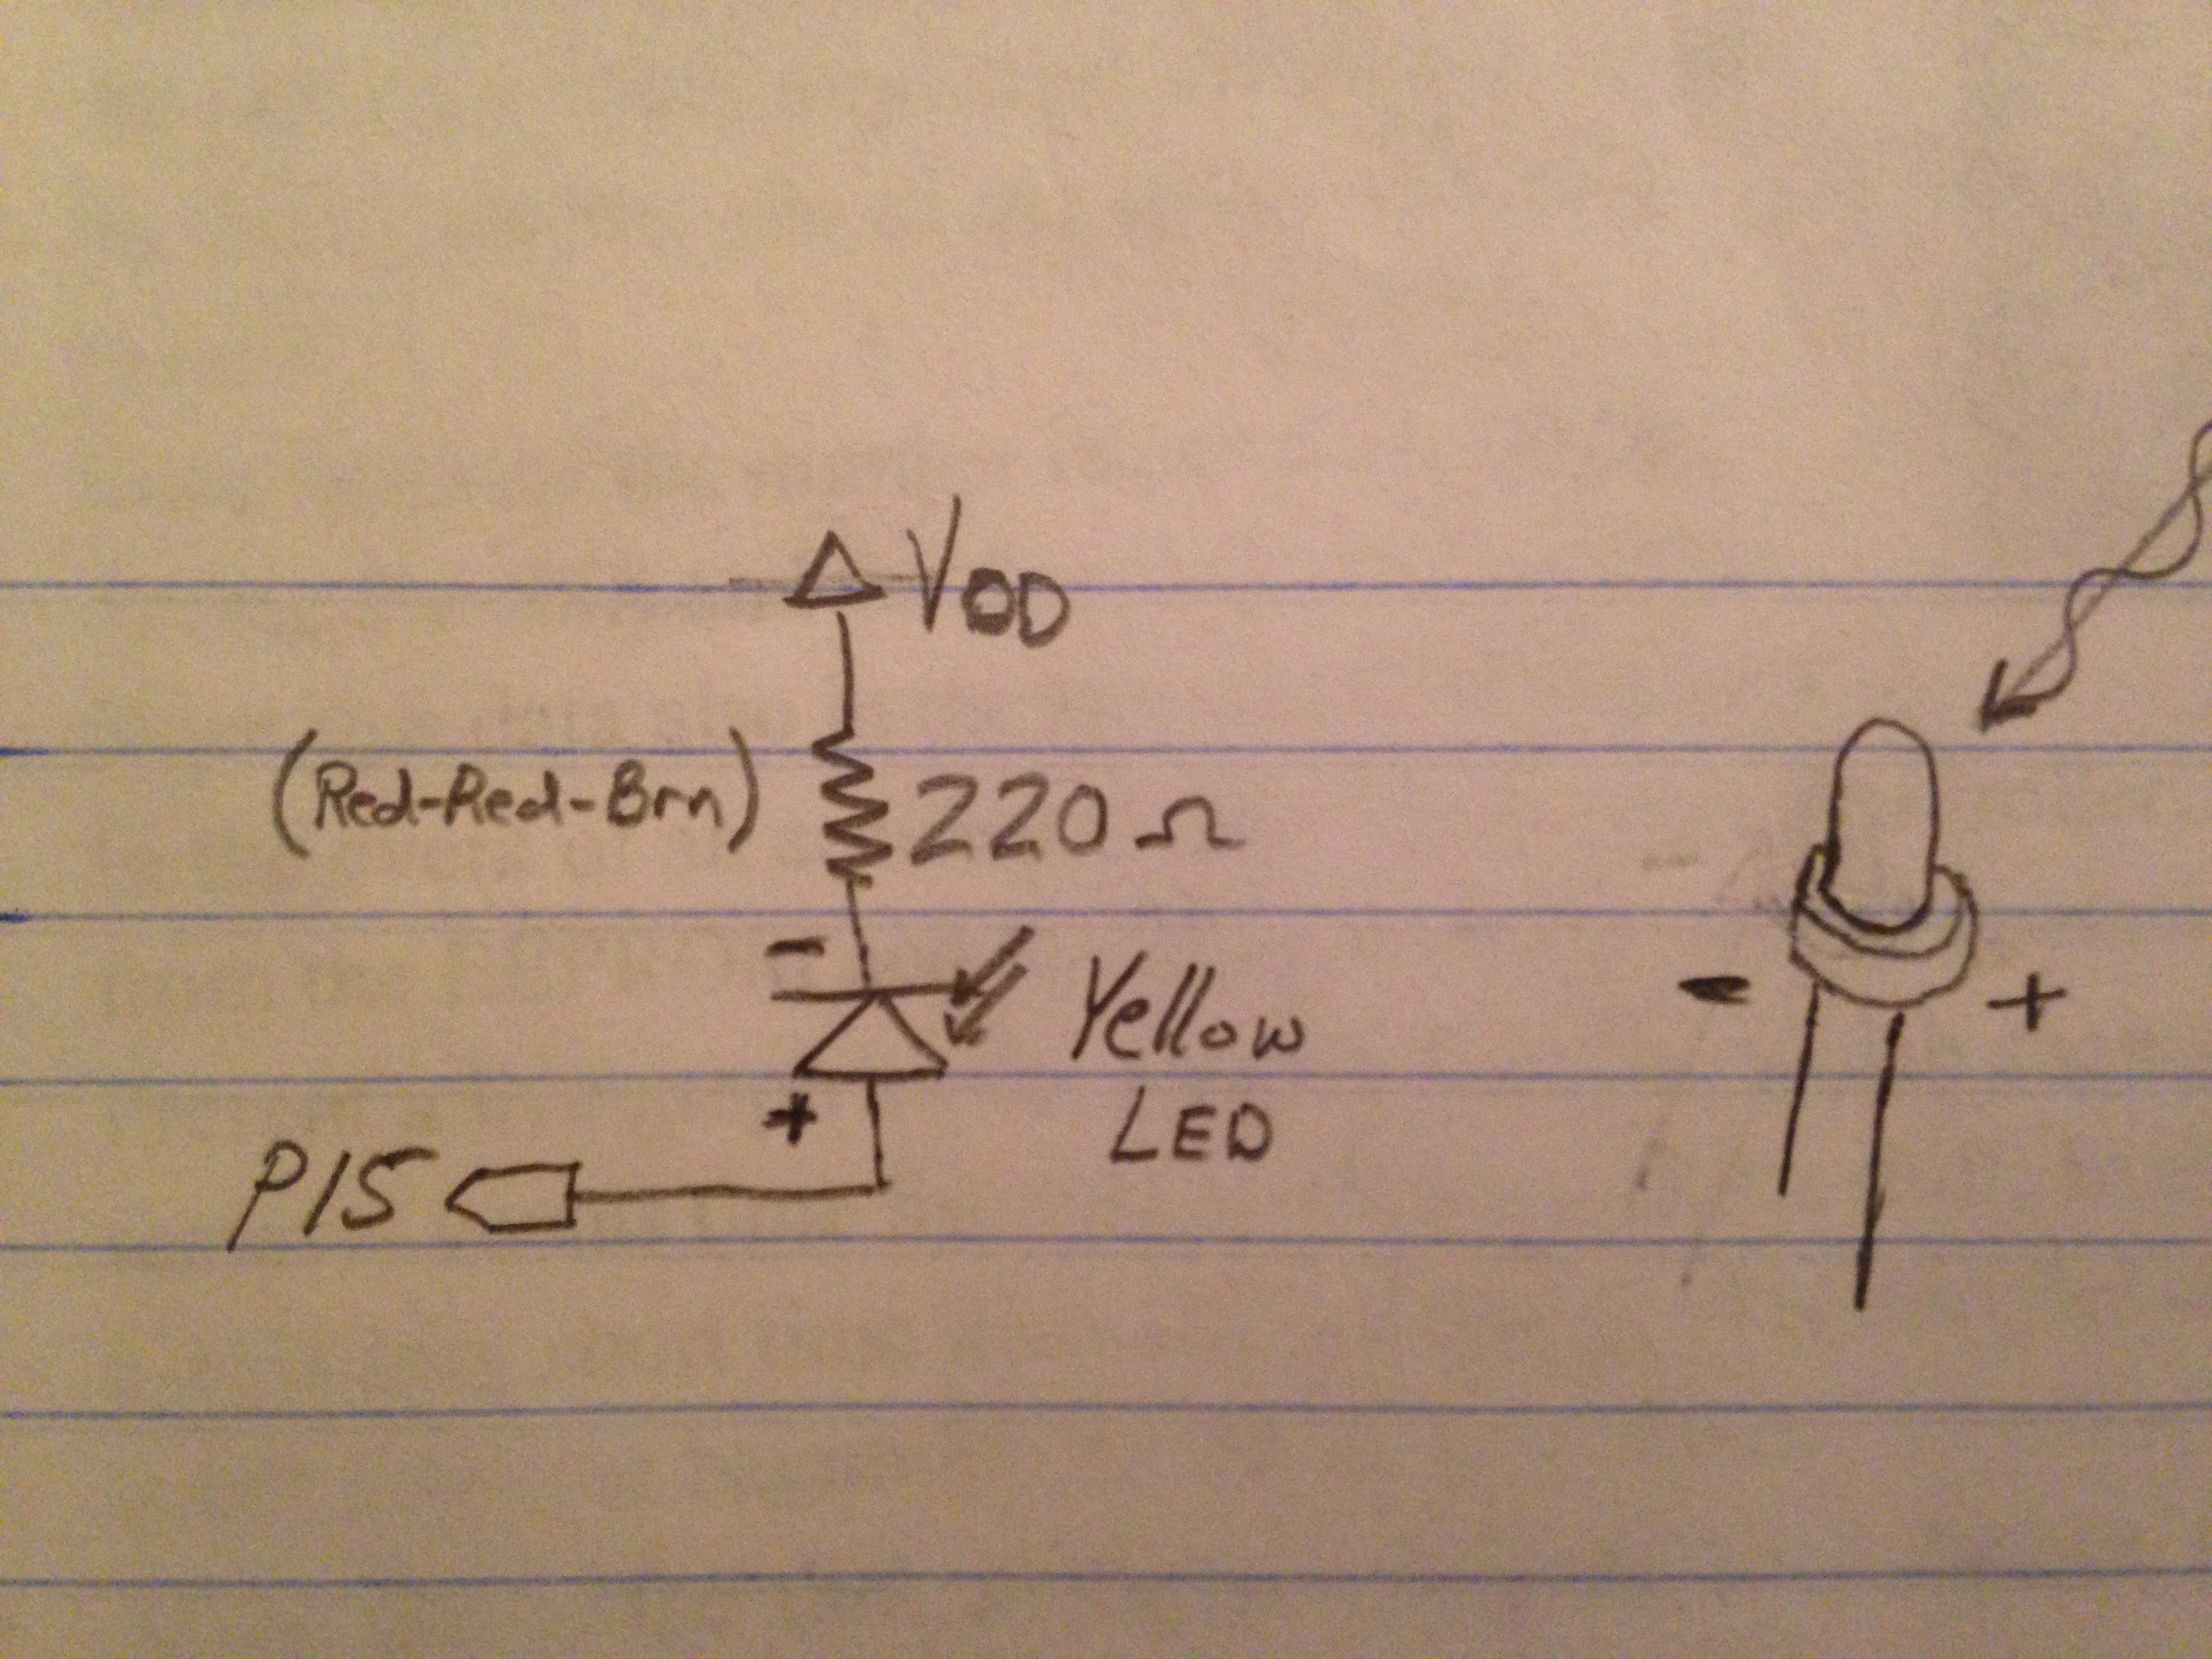 VDD
(Red-Red-Brn) 220 Ω
-
Yellow
LED
+
P15
- +